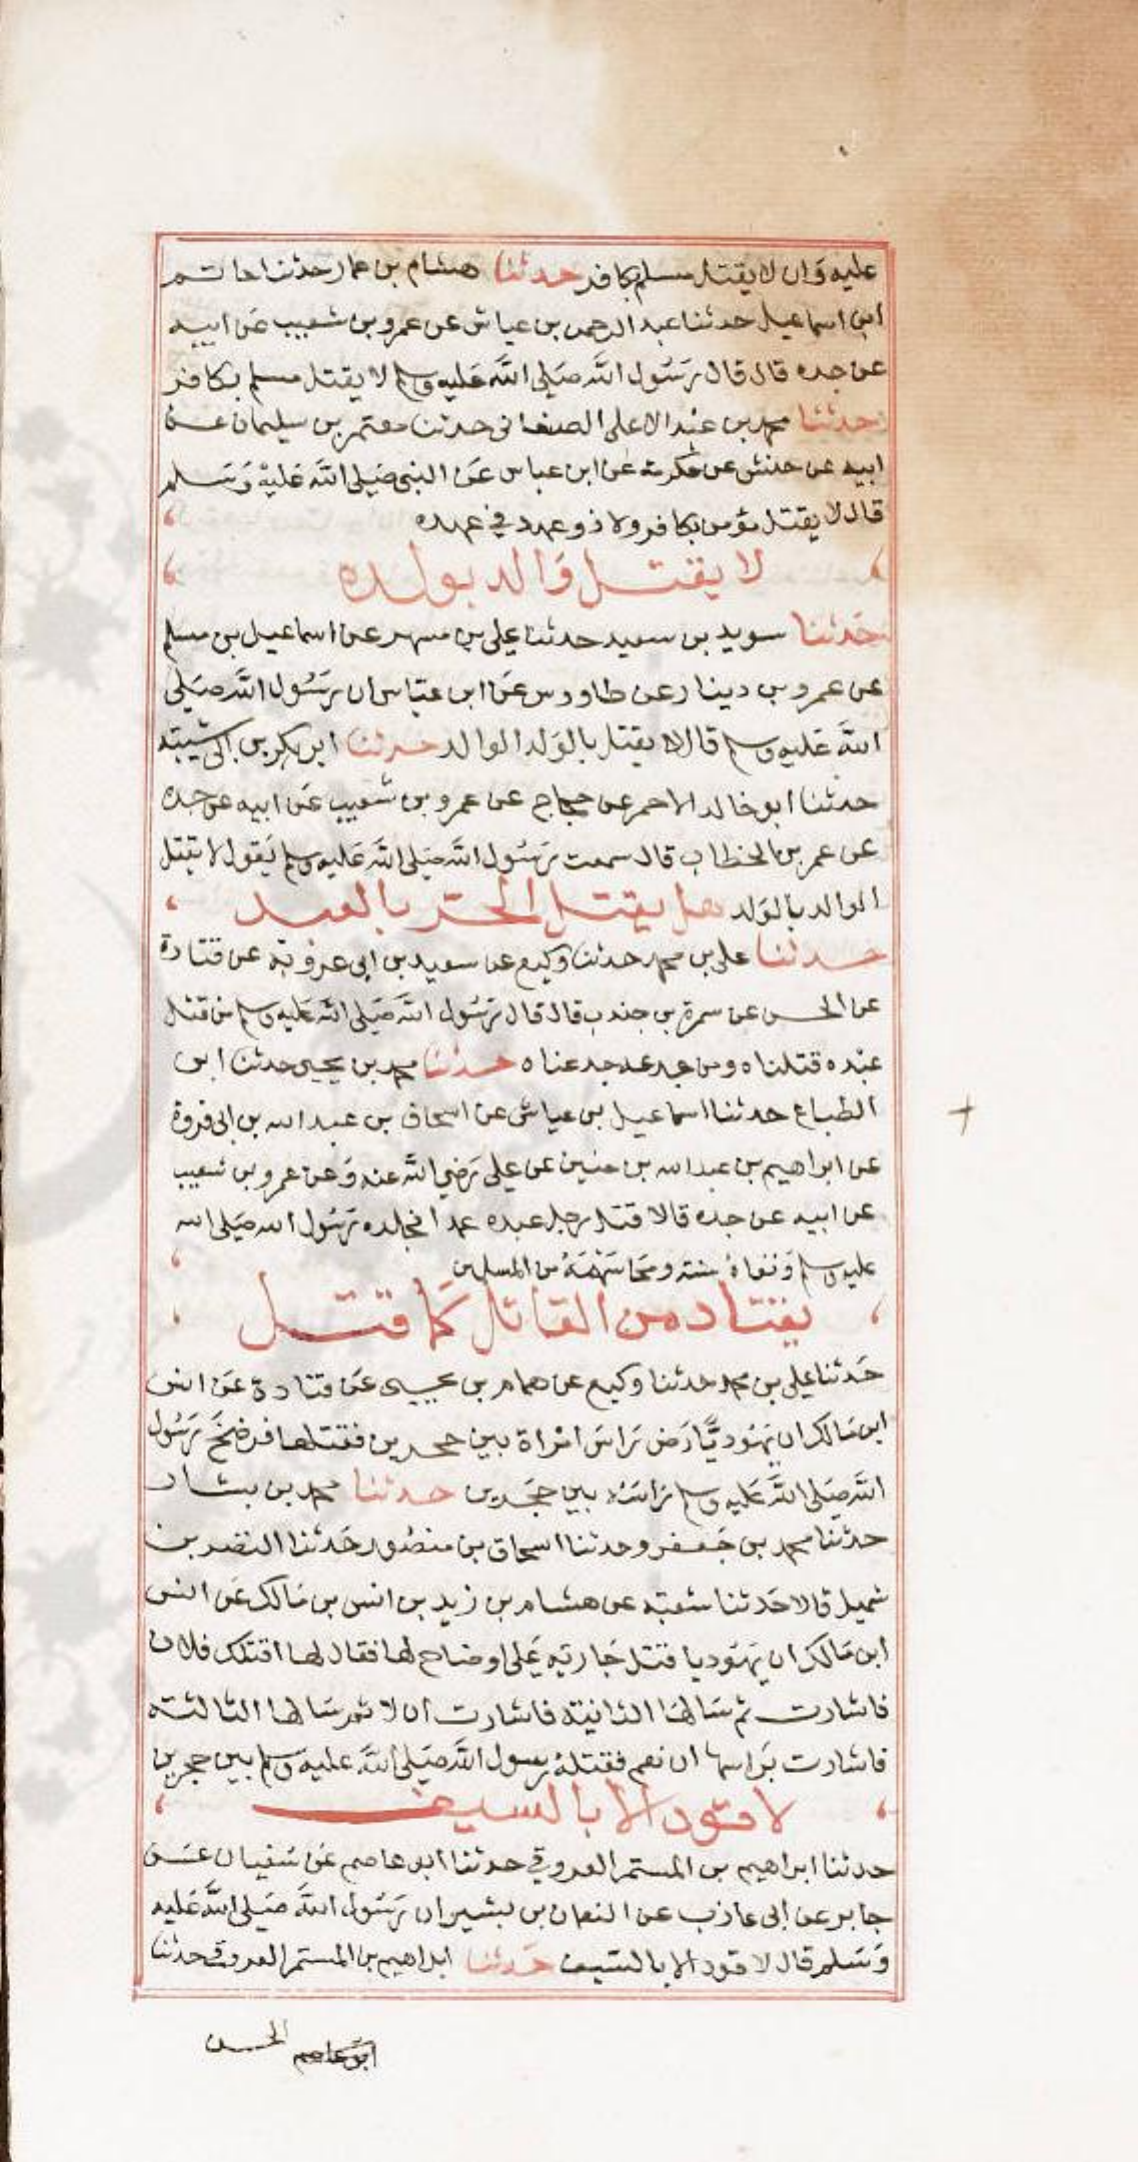 عليه وان لا يقتل مسلم بكافر حدثنا هشام بن عمار حدثنا حاتم
ابن اسماعيل حدثنا عبد الرحمن بن عياش عن عمرو بن شعيب عن ابيه
عن جده قال قال رسول الله صلى الله عليه وسلم لا يقتل مسلم بكافر
حدثنا محمد بن عبد الاعلى الصنعاني حدثنا معتمر بن سليمان عن
ابيه عن حنش عن عكرمة عن ابن عباس عن النبي صلى الله عليه وسلم
قال لا يقتل مؤمن بكافر ولا ذو عهد في عهده
لا يقتل والد بولده
حدثنا سويد بن سعيد حدثنا علي بن مسهر عن اسماعيل بن مسلم
عن عمرو بن دينار عن طاووس عن ابن عباس ان رسول الله صلى
الله عليه وسلم قال لا يقتل بالولد الوالد حدثنا ابو بكر بن ابي شيبة
حدثنا ابو خالد الاحمر عن حجاج عن عمرو بن شعيب عن ابيه عن جده
عن عمر بن الخطاب قال سمعت رسول الله صلى الله عليه وسلم يقول لا يقتل
الوالد بالولد هل يقتل الحر بالعبد
حدثنا علي بن محمد حدثنا وكيع عن سعيد بن ابي عروبة عن قتادة
عن الحسن عن سمرة بن جندب قال قال رسول الله صلى الله عليه وسلم من قتل
عبده قتلناه ومن جدعه جدعناه حدثنا محمد بن يحيى حدثنا ابن
الطباع حدثنا اسماعيل بن عياش عن اسحاق بن عبد الله بن ابي فروة
عن ابراهيم بن عبد الله بن حنين عن علي رضي الله عنه وعن عمرو بن شعيب
عن ابيه عن جده قالا قتل رجل عبده عمدا فجلده رسول الله صلى الله
عليه وسلم ونفاه سنة ومحا سهمه من المسلمين
يقتاد من القاتل كما قتل
حدثنا علي بن محمد حدثنا وكيع عن همام بن يحيى عن قتادة عن انس
ابن مالك ان يهوديا رض راس امراة بين حجرين فقتلها فرضخ رسول
الله صلى الله عليه وسلم راسه بين حجرين حدثنا محمد بن بشار
حدثنا محمد بن جعفر وحدثنا اسحاق بن منصور حدثنا النضر بن
شميل قالا حدثنا شعبة عن هشام بن زيد بن انس بن مالك عن انس
ابن مالك ان يهوديا قتل جارية على اوضاح لها فقال لها اقتلك فلان
فاشارت ثم سالها الثانية فاشارت ان لا ثم سالها الثالثة
فاشارت براسها ان نعم فقتله رسول الله صلى الله عليه وسلم بين حجرين
لا قود الا بالسيف
حدثنا ابراهيم بن المستمر العروقي حدثنا ابو عاصم عن سفيان عن
جابر عن ابي عازب عن النعمان بن بشير ان رسول الله صلى الله عليه
وسلم قال لا قود الا بالسيف حدثنا ابراهيم بن المستمر العروقي حدثنا
ابو عاصم الحسن